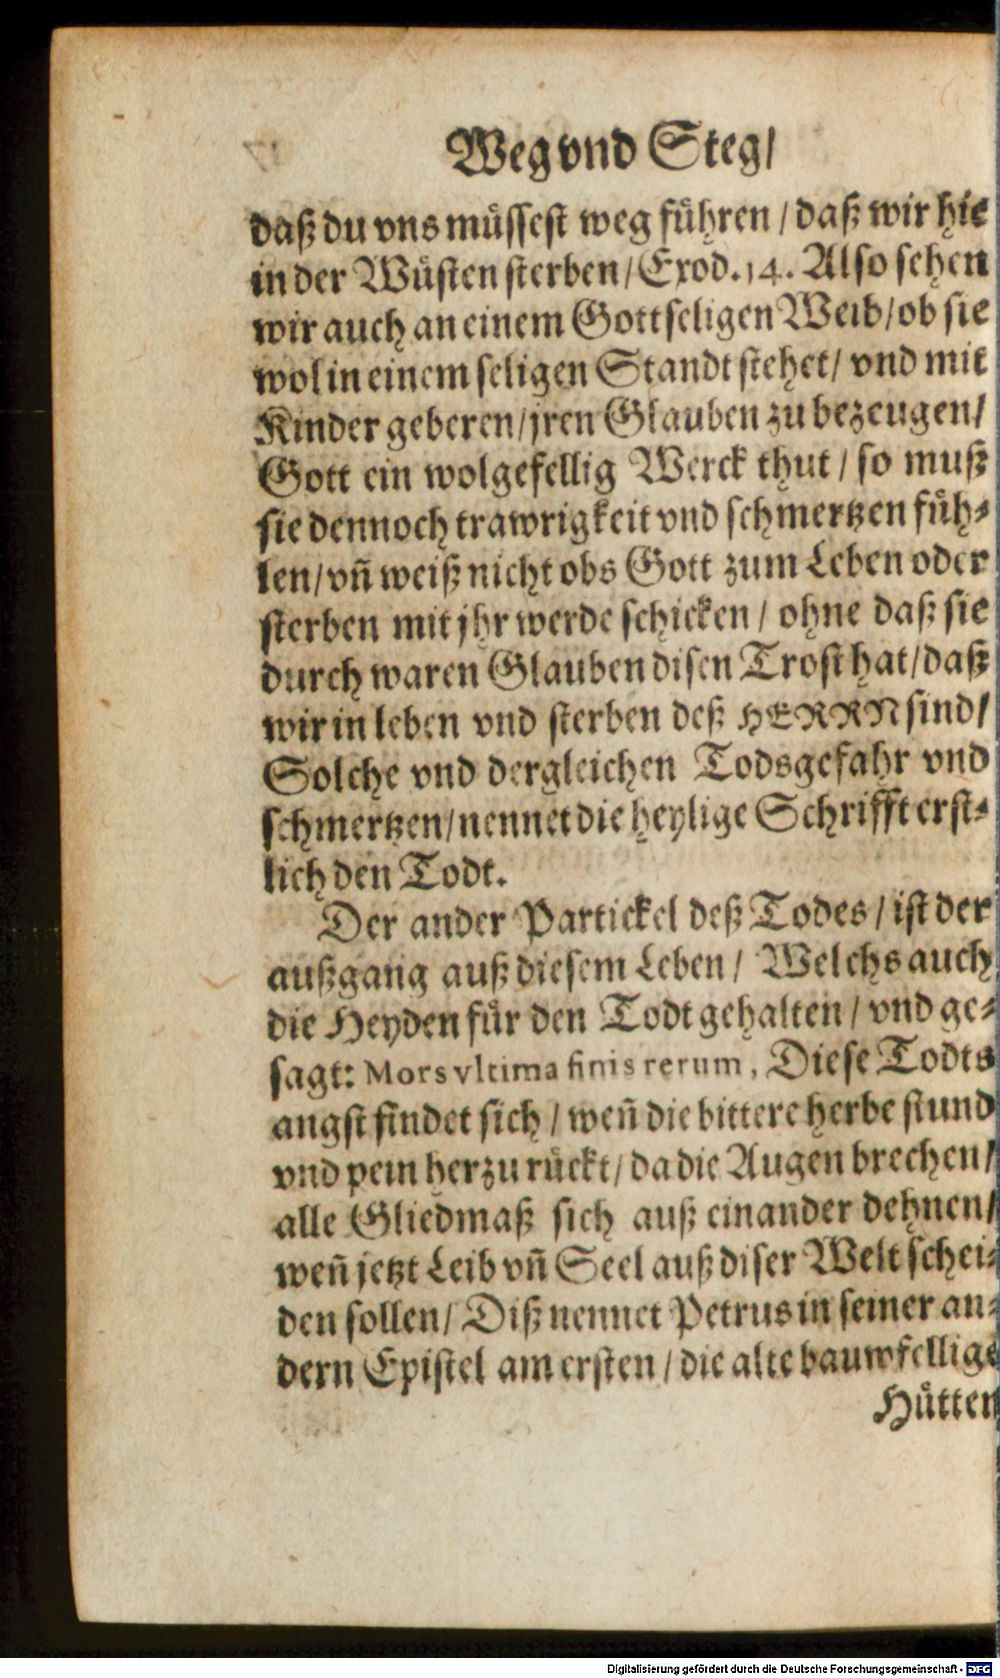 Weg vnd Steg/
daß du vns müssest weg führen / daß wir hie
in der Wüsten sterben / Exod. 14. Also sehen
wir auch an einem Gottseligen Weib / ob sie
wol in einem seligen Standt stehet / vnd mit
Kinder geberen / jren Glauben zu bezeugen /
Gott ein wolgefellig Werck thut / so muß
sie dennoch trawrigkeit vnd schmertzen füh⸗
len / vñ weiß nicht obs Gott zum Leben oder
sterben mit jhr werde schicken / ohne daß sie
durch waren Glauben disen Trost hat / daß
wir in leben vnd sterben deß HERRN sind /
Solche vnd dergleichen Todsgefahr vnd
schmertzen / nennet die heylige Schrifft erst⸗
lich den Todt.
Der ander Partickel deß Todes / ist der
außgang auß diesem Leben / Welchs auch
die Heyden für den Todt gehalten / vnd ge⸗
sagt: Mors vltima finis rerum, Diese Todts
angst findet sich / weñ die bittere herbe stund
vnd pein herzu rückt / da die Augen brechen /
alle Gliedmaß sich auß einander dehnen /
weñ jetzt Leib vñ Seel auß diser Welt schei⸗
den sollen / Diß nennet Petrus in seiner an⸗
dern Epistel am ersten / die alte bauwfellige
Hütten
Digitalisierung gefördert durch die Deutsche Forschungsgemeinschaft - DFG